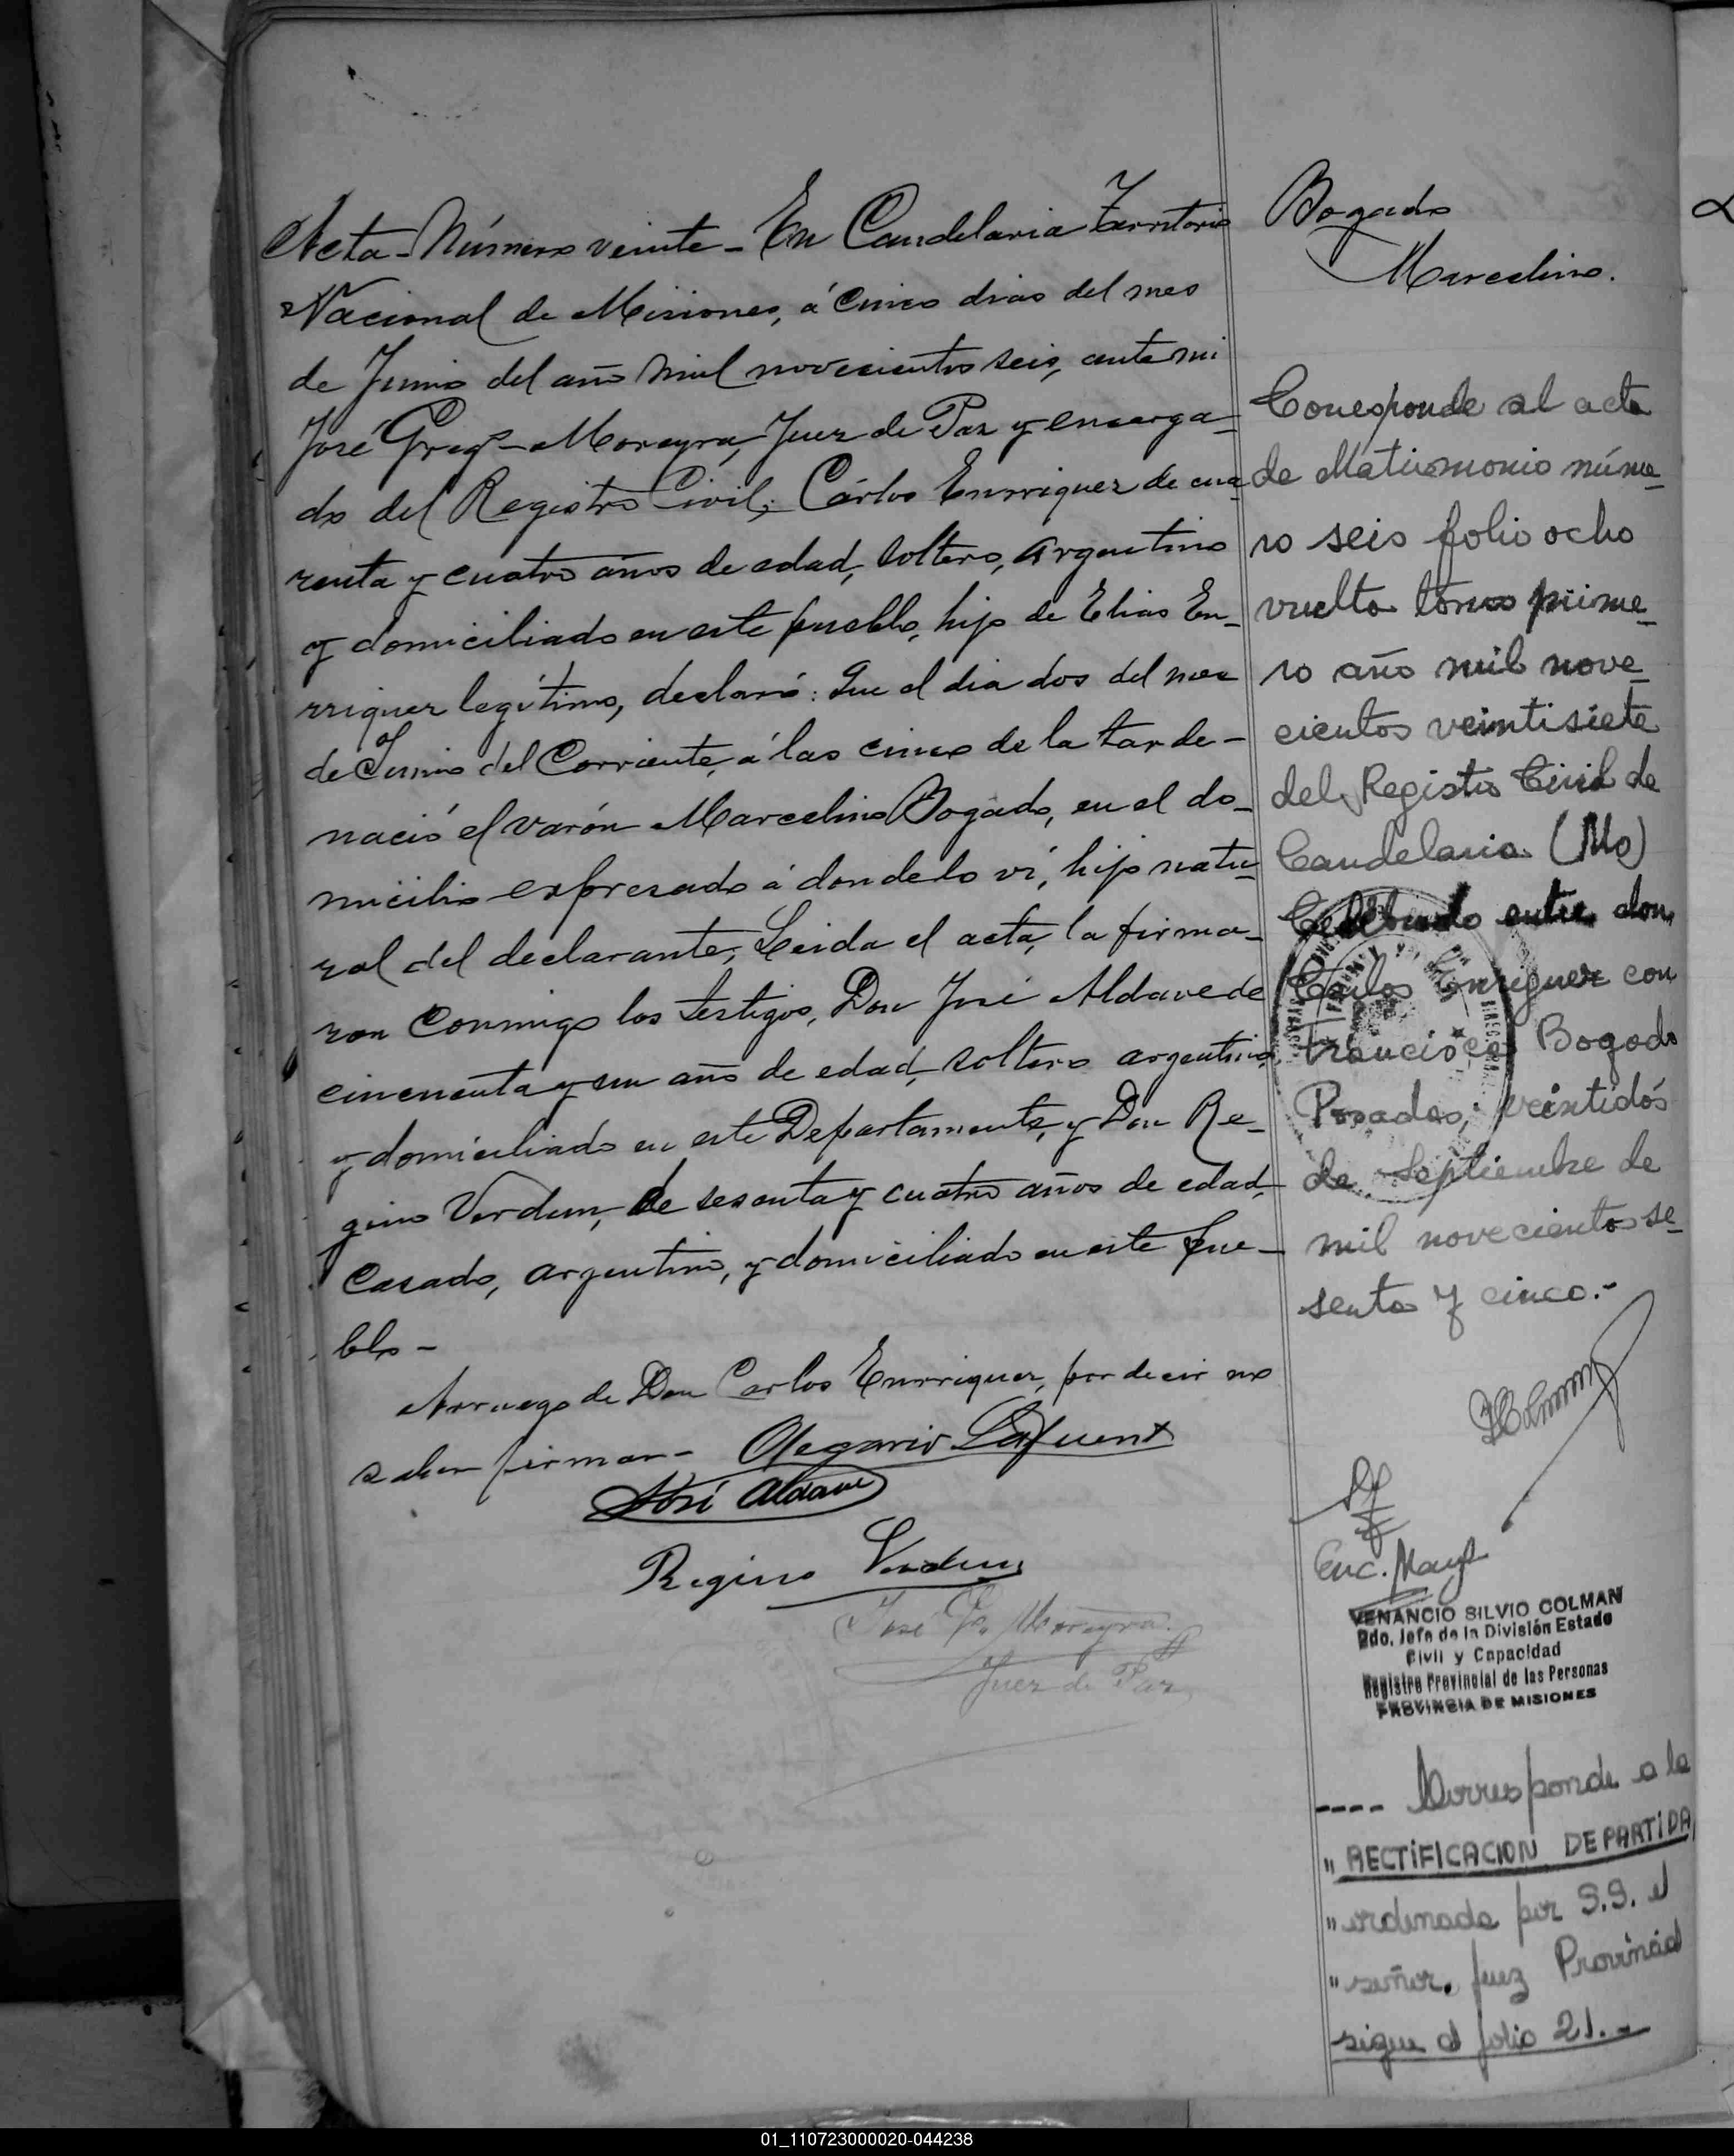 Acta-Número veinte- En Candelaria Territorio
Nacional de Misiones, á Cinco dias del mes
de Junio del año Mil novecientos seis, ante mi
José Gregº Moreyra, Juez de Paz y encarga-
do del Registro Civil; Cárlos Enrriquez de cua
renta y cuatro años de edad, soltero, argentino
y domiciliado en este pueblo, hijo de Elias En-
rriquez legítimo, declaró: Que el dia dos del mes
de Junio del Corriente, á las cinco de la tarde-
nació el varón Marcelino Bogado, en el do-
micilio expresado á donde lo vi, hijo natu-
ral del declarante; Leida el acta, la firma-
ron Conmigo los testigos, Don José Aldave de
cincuenta y un año de edad, soltero argentino,
y domiciliado en este Departamento, y Don Re-
gino Verdun, de sesenta y cuatro años de edad,
Casado, argentino, y domiciliado en este Pue-
blo-
Arruego de Don Carlos Enrriquez, por decir no
saber firmar- Olegario Lafuent
José Aldave
Regino Verdun
José G. Moreyra
Juez de Paz
Bogado
Marcelino.
Coresponde al acta
de Matrimonio núme-
ro seis folio ocho
vuelto tomo prime-
ro año mil nove-
cientos veintisiete
del Registro Civil de
Candelaria (Mo)
Celebrado entre don
Carlos Enriquez con
Francisca Bogado
Posadas, veintidós
de Septiembre de
mil novecientos se-
senta y cinco.-
Enc.
VENANCIO SILVIO COLMAN
2do. Jefe de la División Estado
Civil y Capacidad
Registro Provincial de las Personas
PROVINCIA DE MISIONES
---- Corresponde a la
" RECTIFICACION DE PARTIDA
" ordenada por S.S. el
" señor. Juez Provincial
sigue al folio 21.-
01_110723000020-044238